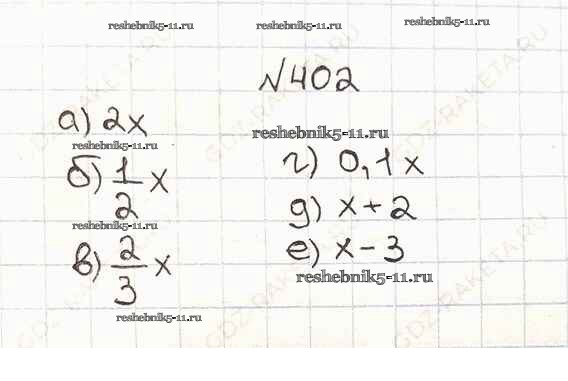 reshebnik5-11.ru
reshebnik5-11.ru
№402
а) 2x
reshebnik5-11.ru
reshebnik5-11.ru
б) 1/2 x
г) 0,1x
reshebnik5-11.ru
д) x+2
в) 2/3 x
е) x-3
reshebnik5-11.ru
reshebnik5-11.ru
GDZ-RAKETA.RU
GDZ-RAKETA.RU
GDZ-RAKETA.RU
GDZ-RAKETA.RU
GDZ-RAKETA.RU
GDZ-RAKETA.RU